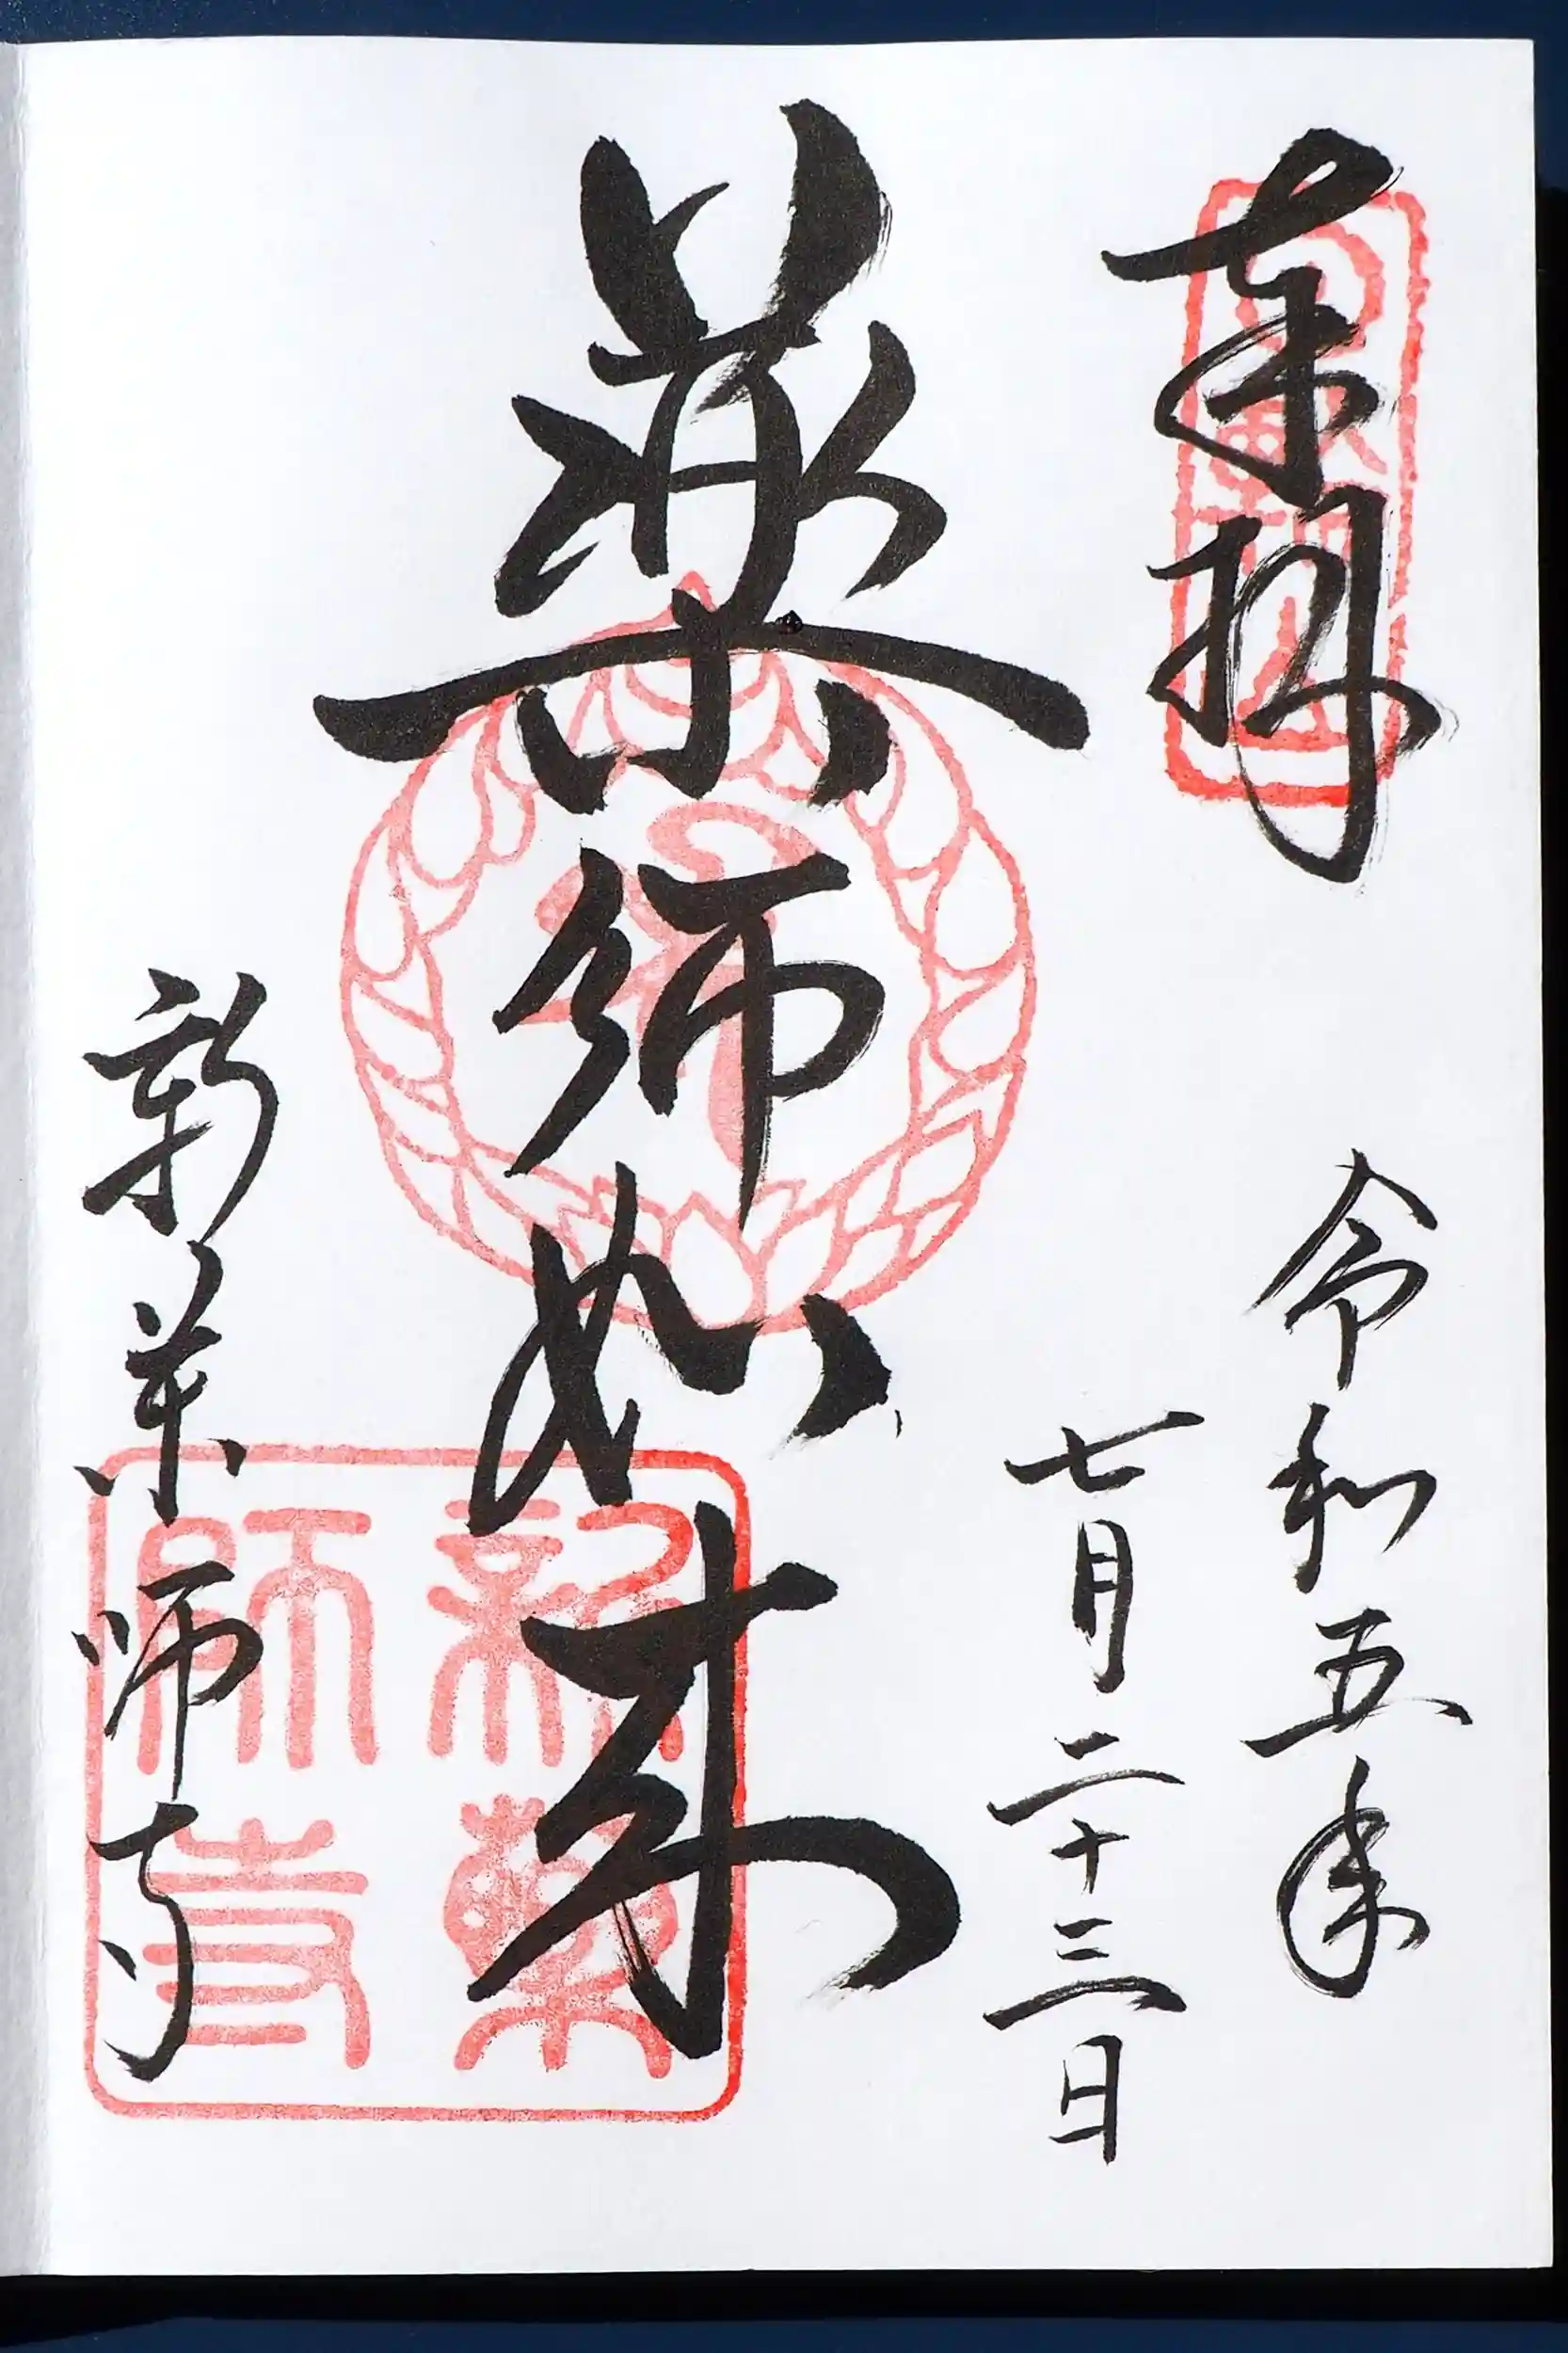 奉拝
令和五年
七月二十三日
薬師如来
新薬師寺
新薬師寺